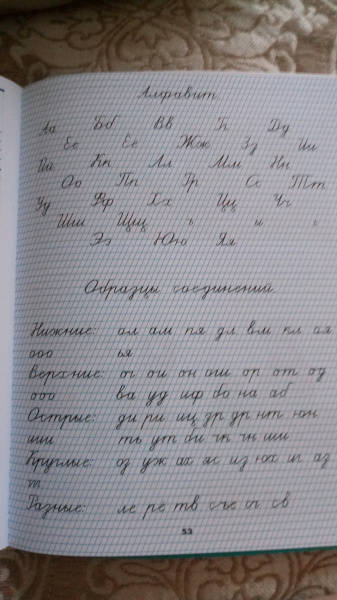 Алфавит
Аа Бб Вв Гг Дд
Ее Ёё Жж Зз Ии
Йй Кк Лл Мм Нн
Оо Пп Рр Сс Тт
Уу Фф Хх Цц Чч
Шш Щщ ъ ы ь
Ээ Юю Яя
Образцы соединений
Нижние: ол ам пя дл вм кл ая
ооо ья
Верхние: ог ои он ош ор от од
ооо ва уд иф бо на аб
Острые: ди ри иц зр др нт юн
иии ть ут би чк чн ши
Круглые: оз уж ах яс из юх иг аз
т
Разные: ле ре тв съе ог св
53